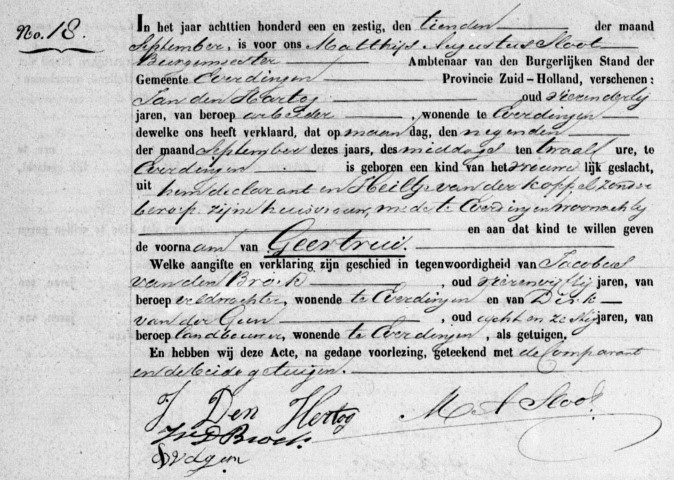 No. 18.
In het jaar achttien honderd een en zestig, den tienden der maand
September, is voor ons Matthijs Augustus Sloot
Burgemeester Ambtenaar van den Burgerlijken Stand der
Gemeente Everdingen Provincie Zuid-Holland, verschenen:
Jan den Hartog oud vierendertig
jaren, van beroep arbeider, wonende te Everdingen
dewelke ons heeft verklaard, dat op maandag, den negenden
der maand September dezes jaars, des middags ten twaalf ure, te
Everdingen is geboren een kind van het vrouwelijk geslacht,
uit hem declarant en Heiltje van der Koppel zonder
beroep zijn huisvrouw, mede te Everdingen woonachtig
en aan dat kind te willen geven
de voornaam van Geertrui.
Welke aangifte en verklaring zijn geschied in tegenwoordigheid van Jacobus
van den Broek, oud vierenvijftig jaren, van
beroep veldwachter, wonende te Everdingen en van Dirk
van der Geen, oud achtenzestig jaren, van
beroep landbouwer, wonende te Everdingen, als getuigen.
En hebben wij deze Acte, na gedane voorlezing, geteekend met de Comparant
en de beide getuigen.
J Den Hertog M A Sloot
D Broek